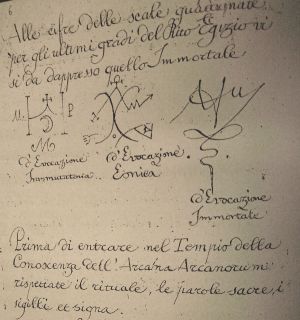 6
Alle cifre delle scale quadernate
per gli ultimi gradi del Rito Egizio vi
si dà dappresso quello Immortale
M. P
M
d'Evocazione
d'Evocazione
Eonica
d'Evocazione
Immortale
Prima di entrare nel Tempio della
Conoscenza dell'Arcana Arcanorum
rispettate il rituale, le parole sacre, i
sigilli et signa.